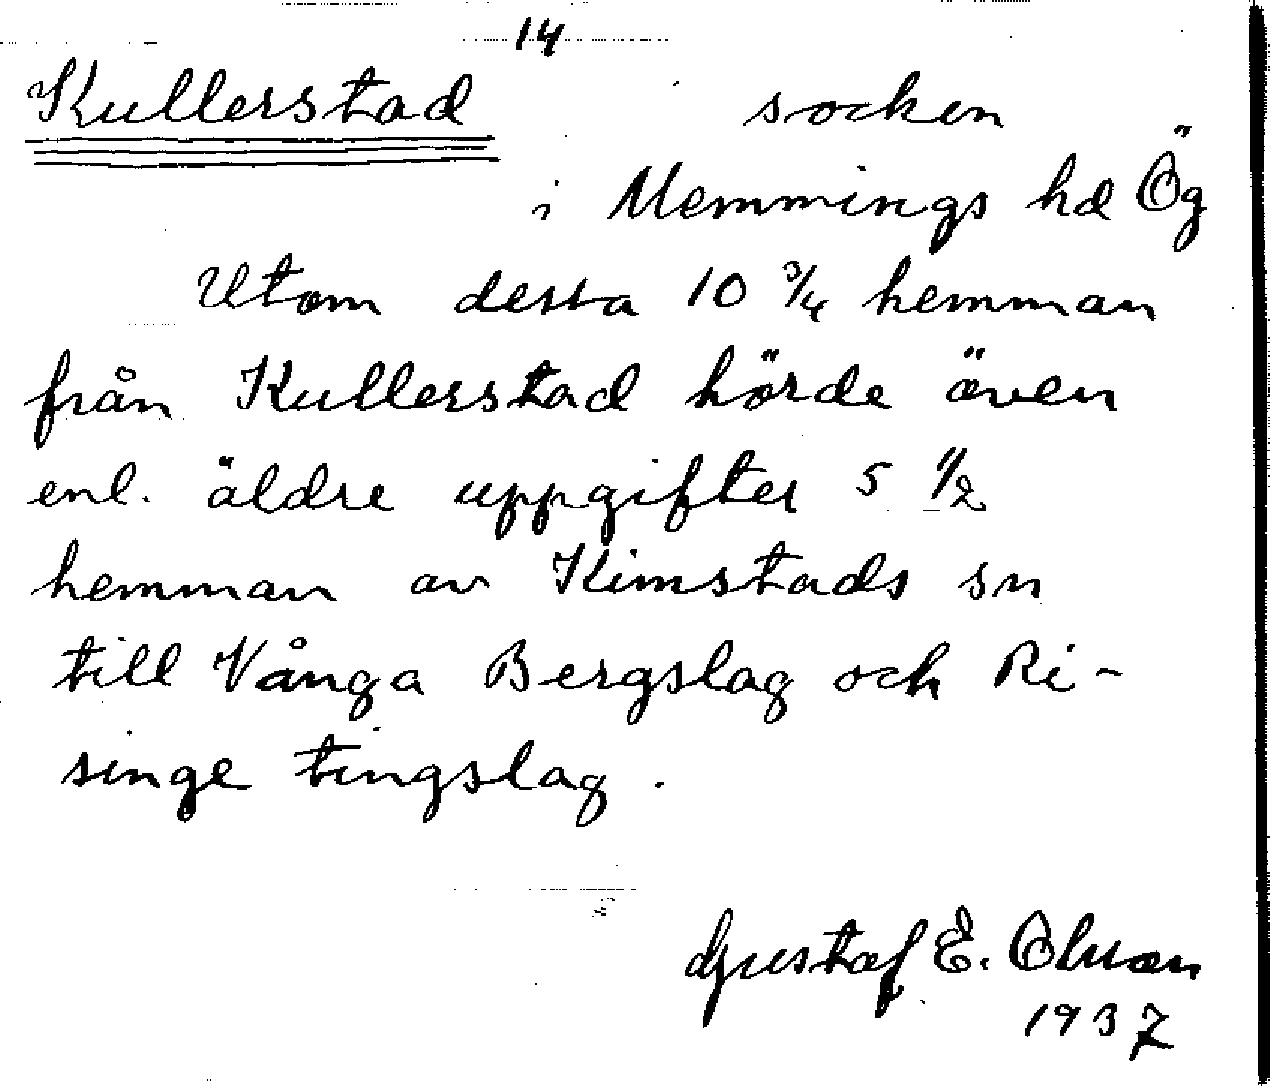 14
Kullerstad socken
i Memmings hd Ög
Utom dessa 10 3/4 hemman
från Kullerstad hörde även
enl. äldre uppgifter 5 1/2
hemman av Kimstads sn
till Vånga Bergslag och Ri-
singe tingslag.
Gustaf E. Olsson
1937